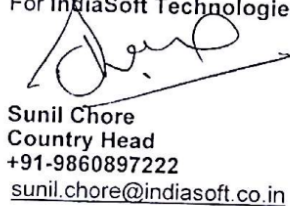 For IndiaSoft Technologie
Sunil Chore
Country Head
+91-9860897222
sunil.chore@indiasoft.co.in